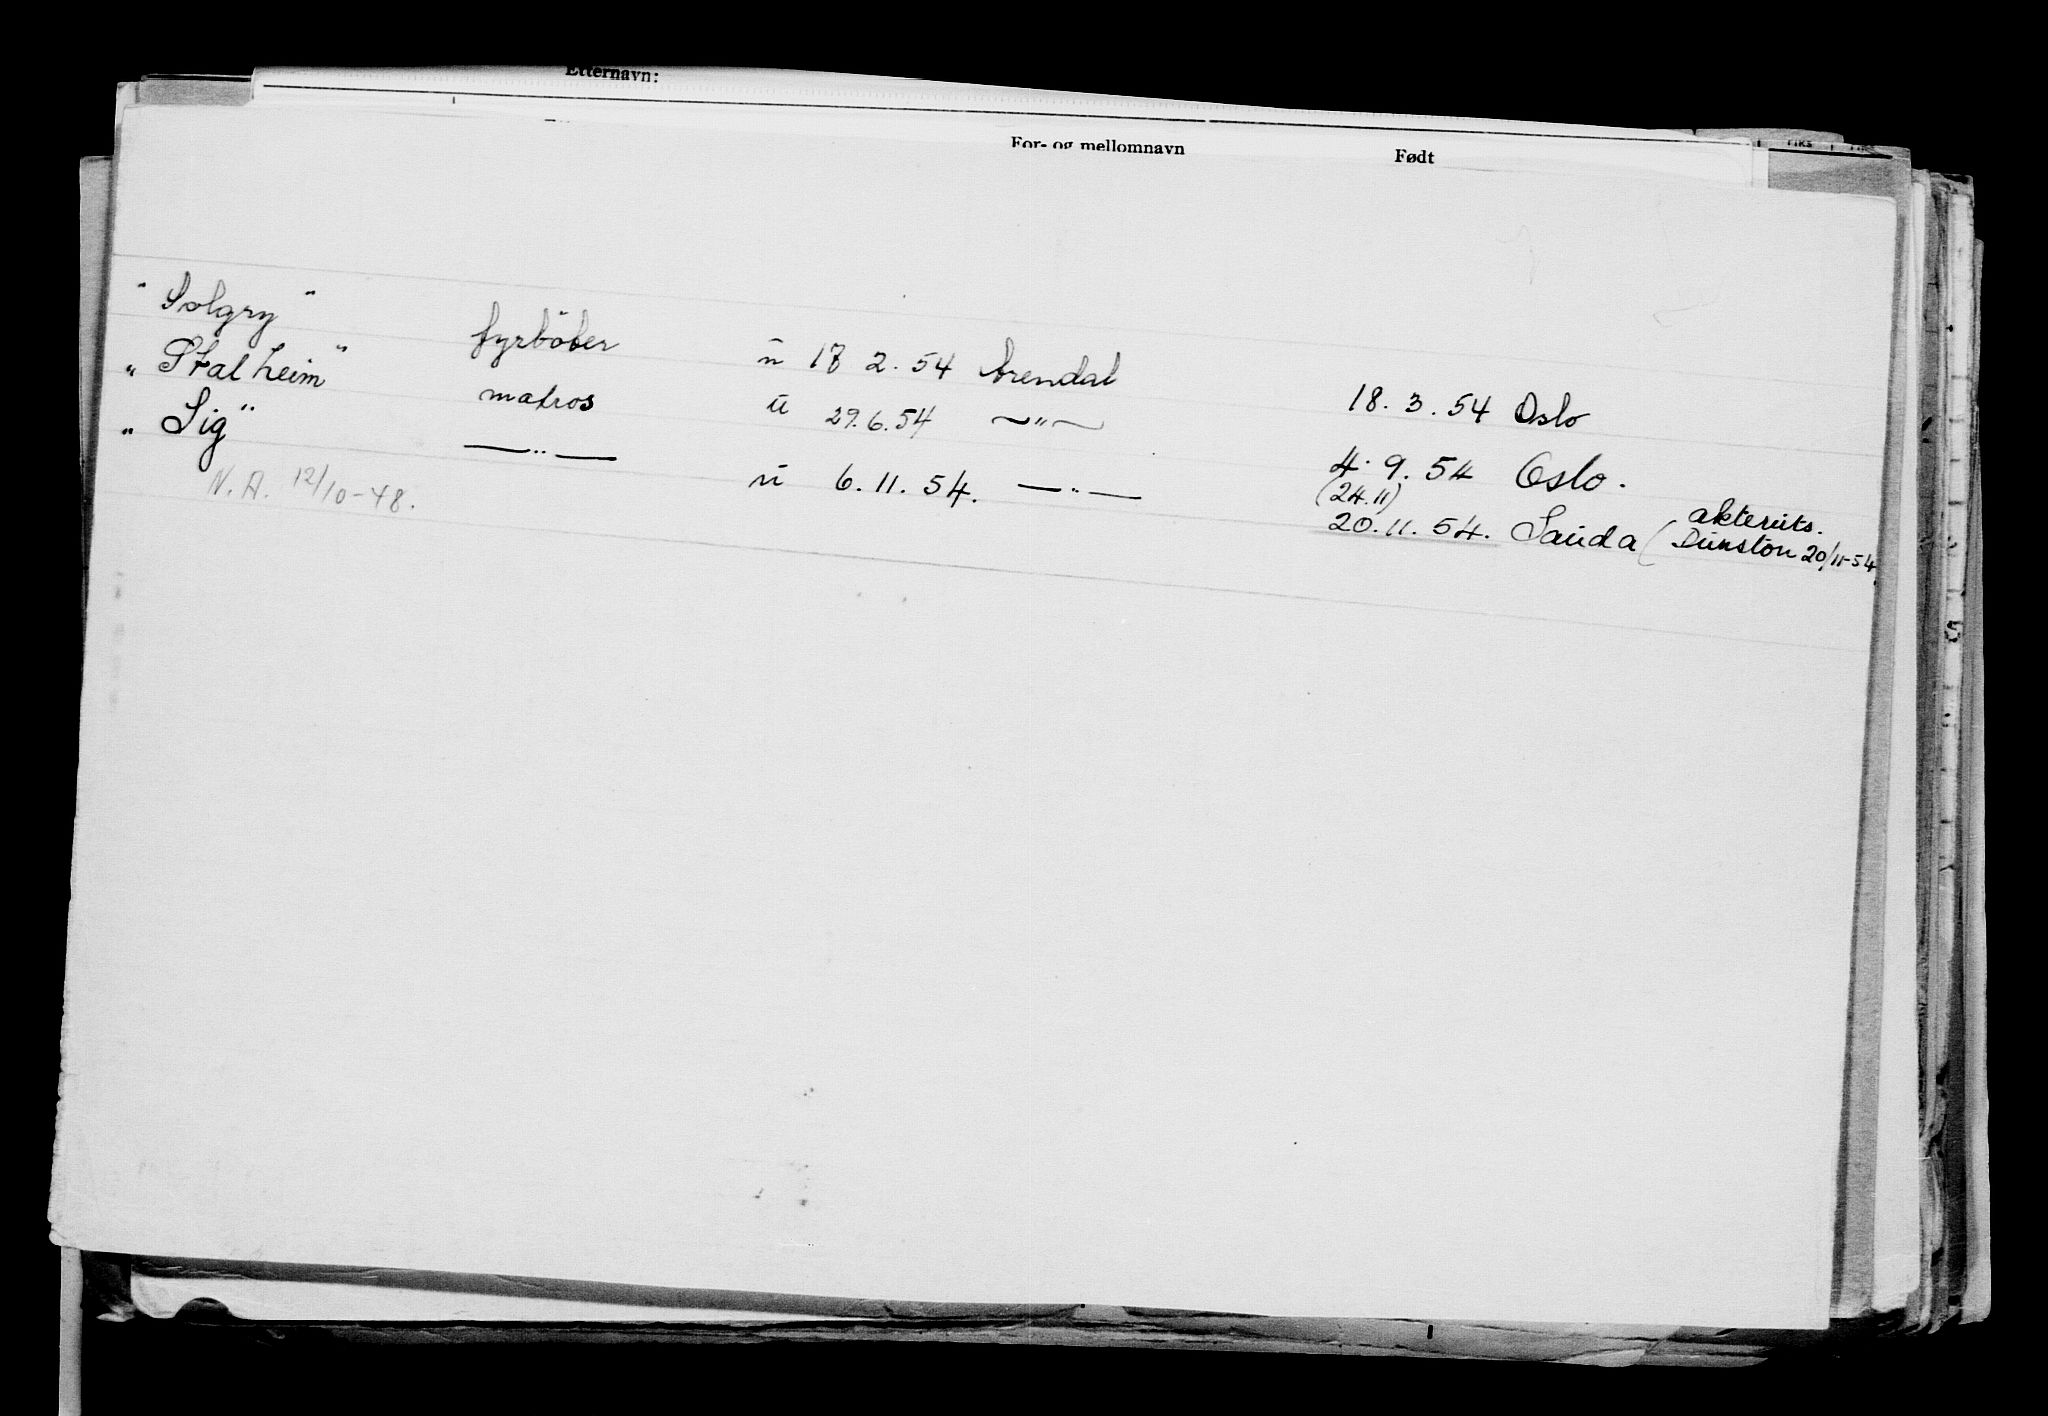 Etternavn:
For- og mellomnavn Født
"Solgry" fyrböter u 18 2. 54 Arendal 18. 3. 54 Oslo
"Stalheim" matros u 29. 6. 54 —"— 4. 9. 54 Oslo.
"Sig" —"— u 6. 11. 54. —"— (24.11) 20. 11. 54. Sauda (akterúts. Dunston 20/11-54.
N.A. 12/10-48.